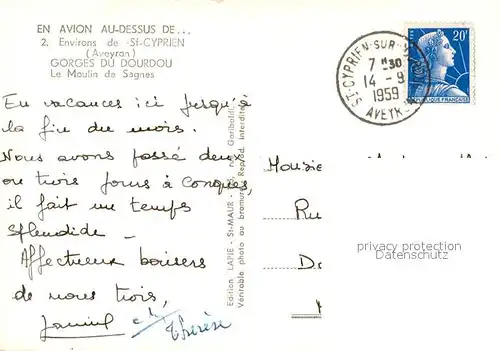 EN AVION AU-DESSUS DE...
2. Environs de St-CYPRIEN
(Aveyron)
GORGES DU DOURDOU
Le Moulin de Sagnes
En vacances ici jusqu'à
la fin du mois.
Nous avons passé deux
ou trois jours à Conques,
il fait un temps
splendide -
Affectueux baisers
de nous trois,
Thérèse
Edition LAPIE - St-MAUR - rue Garibaldi
Véritable photo au bromure - Reprod. interdite
ST-CYPRIEN-SUR-
7 H 30
14 - 9
1959
AVEYRON
20F
REPUBLIQUE FRANÇAISE
Mousie
Ru
D
privacy protection
Datenschutz